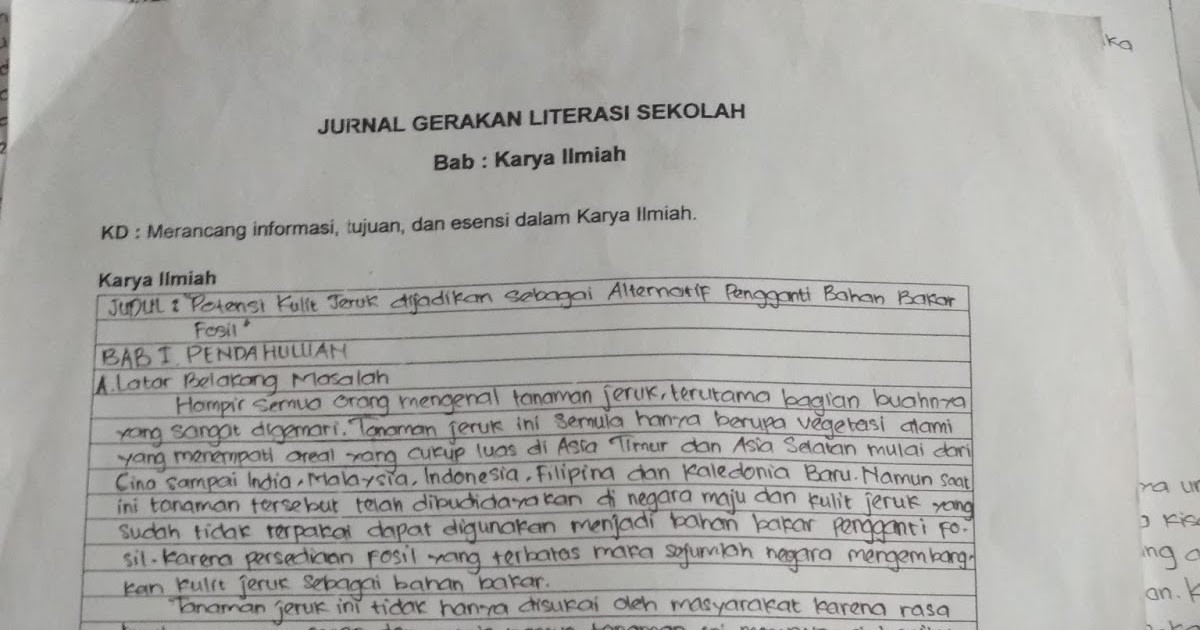 JURNAL GERAKAN LITERASI SEKOLAH
Bab : Karya Ilmiah
KD : Merancang informasi, tujuan, dan esensi dalam Karya Ilmiah.
Karya Ilmiah
JUDUL : "Potensi Kulit Jeruk dijadikan sebagai Alternatif Pengganti Bahan Bakar
Fosil"
BAB I. PENDAHULUAN
A. Latar Belakang Masalah
Hampir semua orang mengenal tanaman jeruk, terutama bagian buahnya
yang sangat digemari. Tanaman jeruk ini semula hanya berupa vegetasi alami
yang menempati areal yang cukup luas di Asia Timur dan Asia Selatan mulai dari
Cina sampai India, Malaysia, Indonesia, Filipina dan Kaledonia Baru. Namun saat
ini tanaman tersebut telah dibudidayakan di negara maju dan kulit jeruk yang
sudah tidak terpakai dapat digunakan menjadi bahan bakar pengganti fo-
sil. Karena persediaan fosil yang terbatas maka sejumlah negara mengembang-
kan kulit jeruk sebagai bahan bakar.
Tanaman jeruk ini tidak hanya disukai oleh masyarakat karena rasa
ika